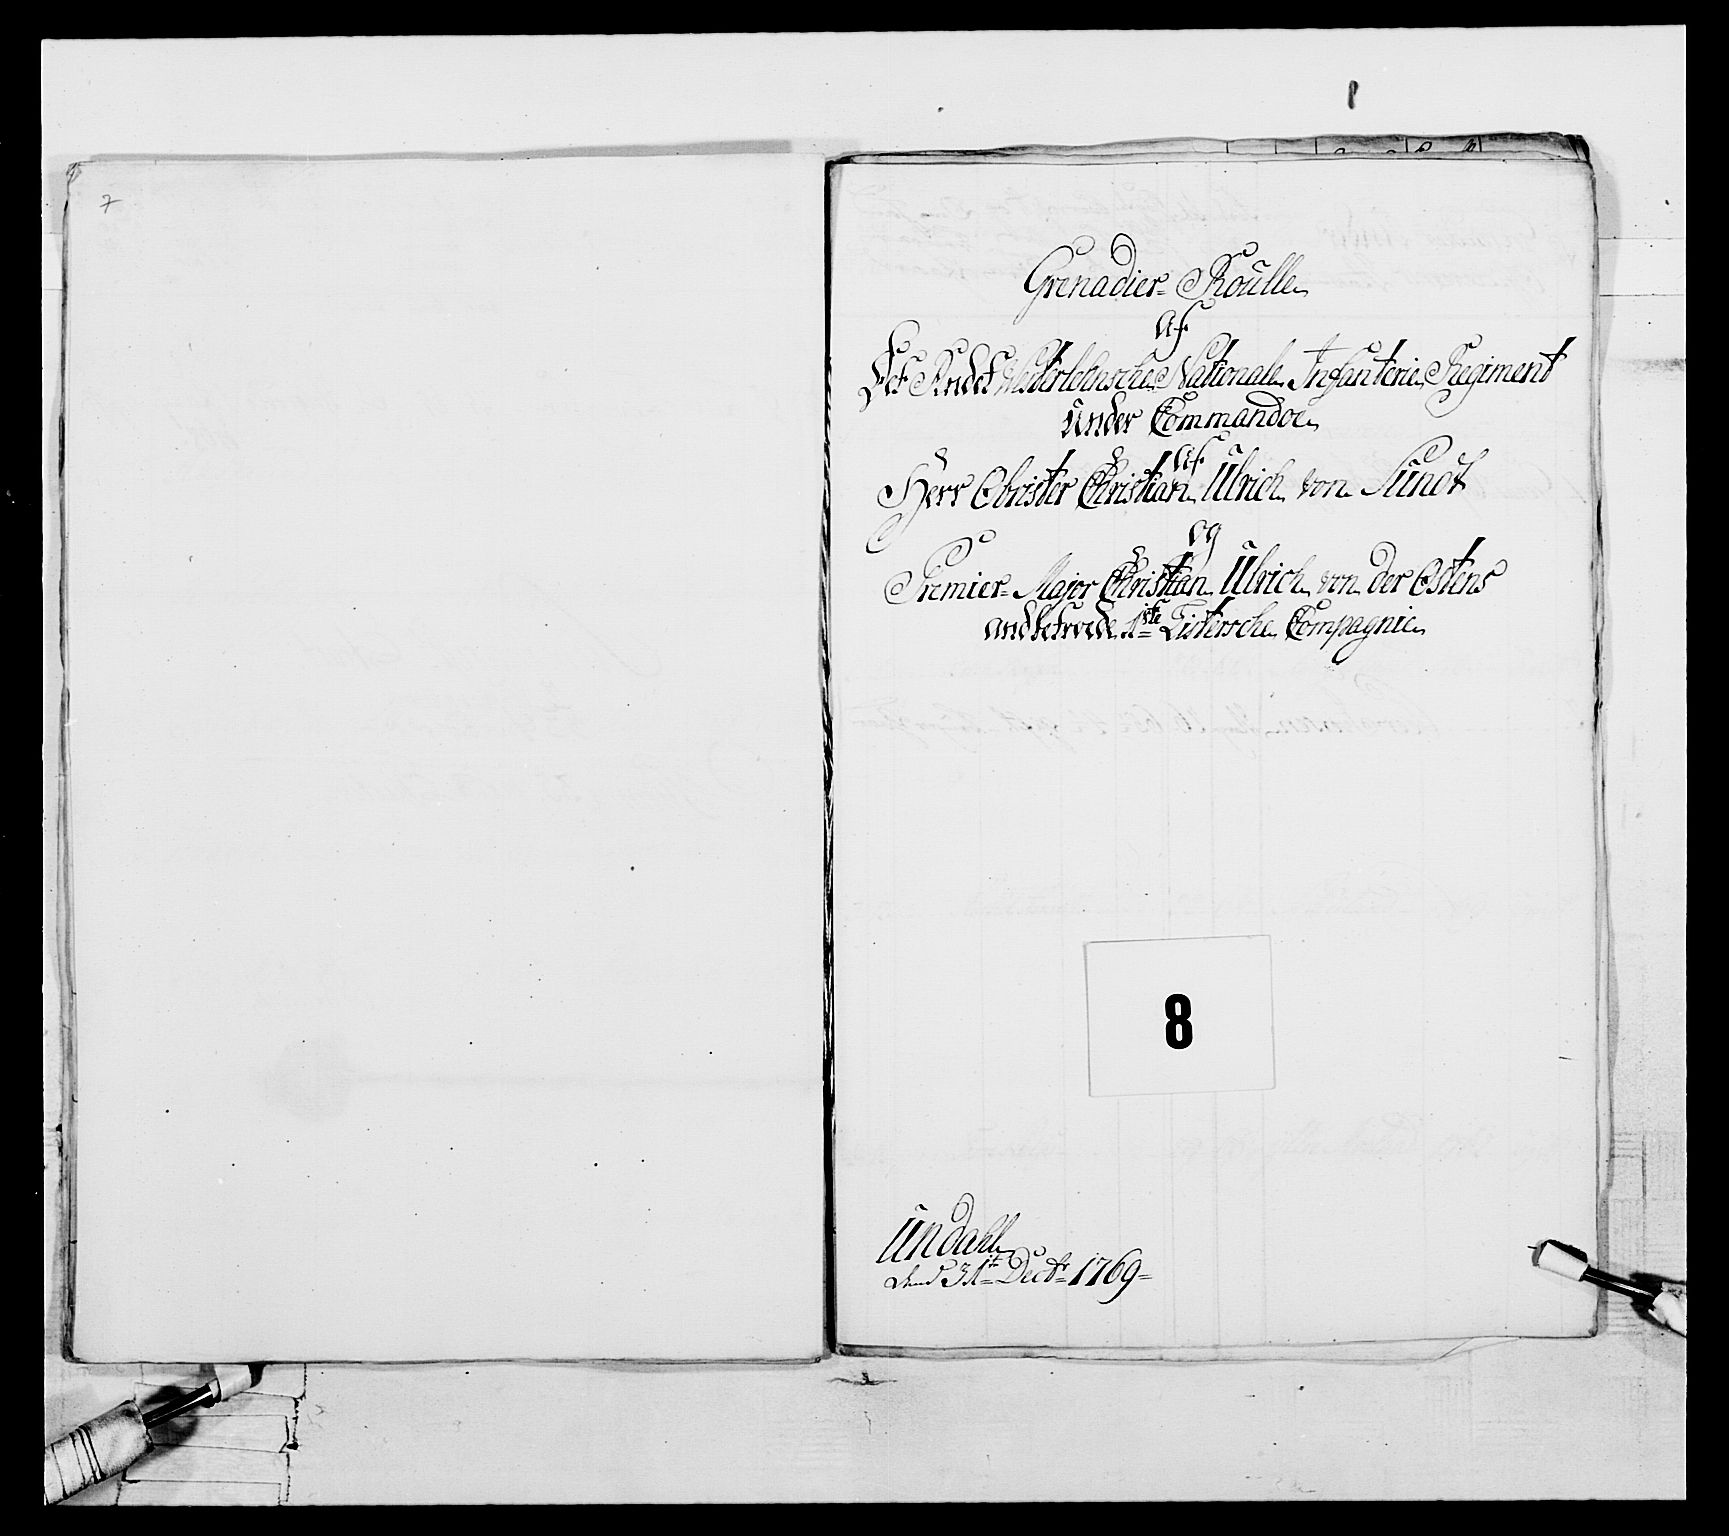 7
Grenadier-Roulle
Af
Det Andet Westerlehnsche Nationale Infanterie Regiment
under Commando
Af
Herr Obrister Christian Ulrich von Nundt
og
Premier-Major Christian Ulrich von der Ostens
andbetroede 1ste Listersche Compagnie
8
Undahl
dend 31te Decbr 1769